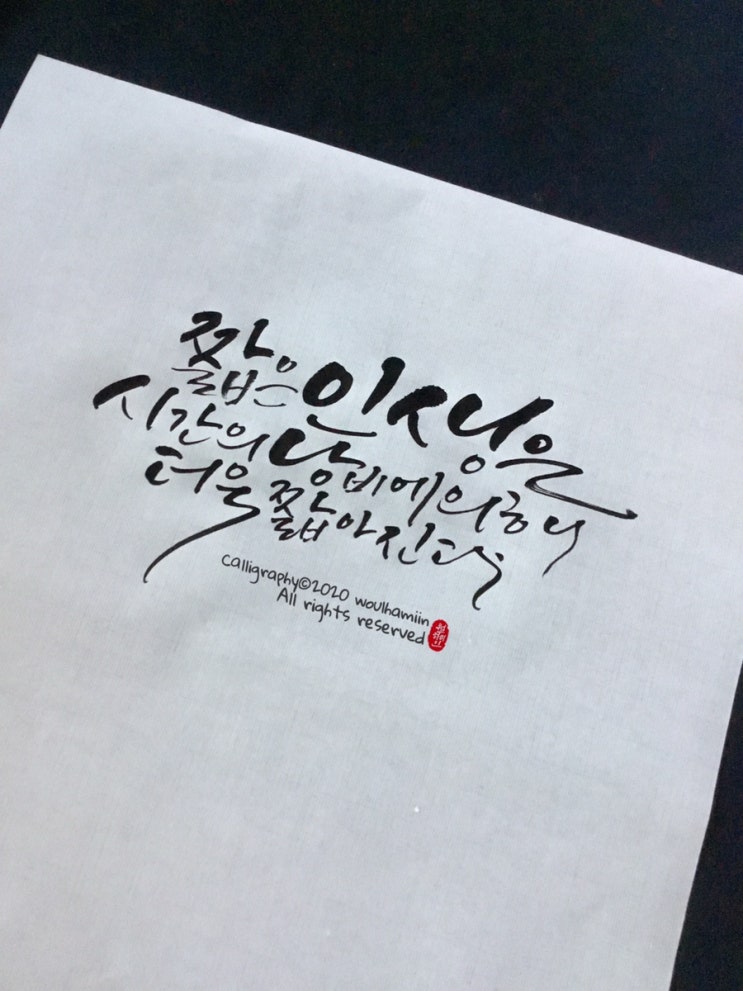 짧은 인생은
시간의 낭비에 의하여
더욱 짧아진다
Calligraphy©2020 woulhamiin
All rights reserved